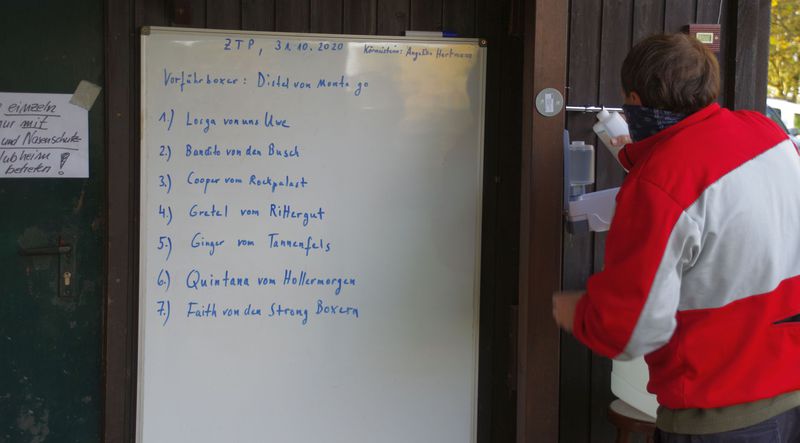 einzeln
nur mit
und Nasenschutz
betreten!
ZTP, 31.10.2020 Körmeisterin: Angelika Hartmann
Vorführboxer: Distel von Monte go
1.) Losga von uns Uwe
2.) Bandito von den Busch
3.) Cooper vom Rockpalast
4.) Gretel vom Rittergut
5.) Ginger vom Tannenfels
6.) Quintana vom Hollermorgen
7.) Faith von den Strong Boxern